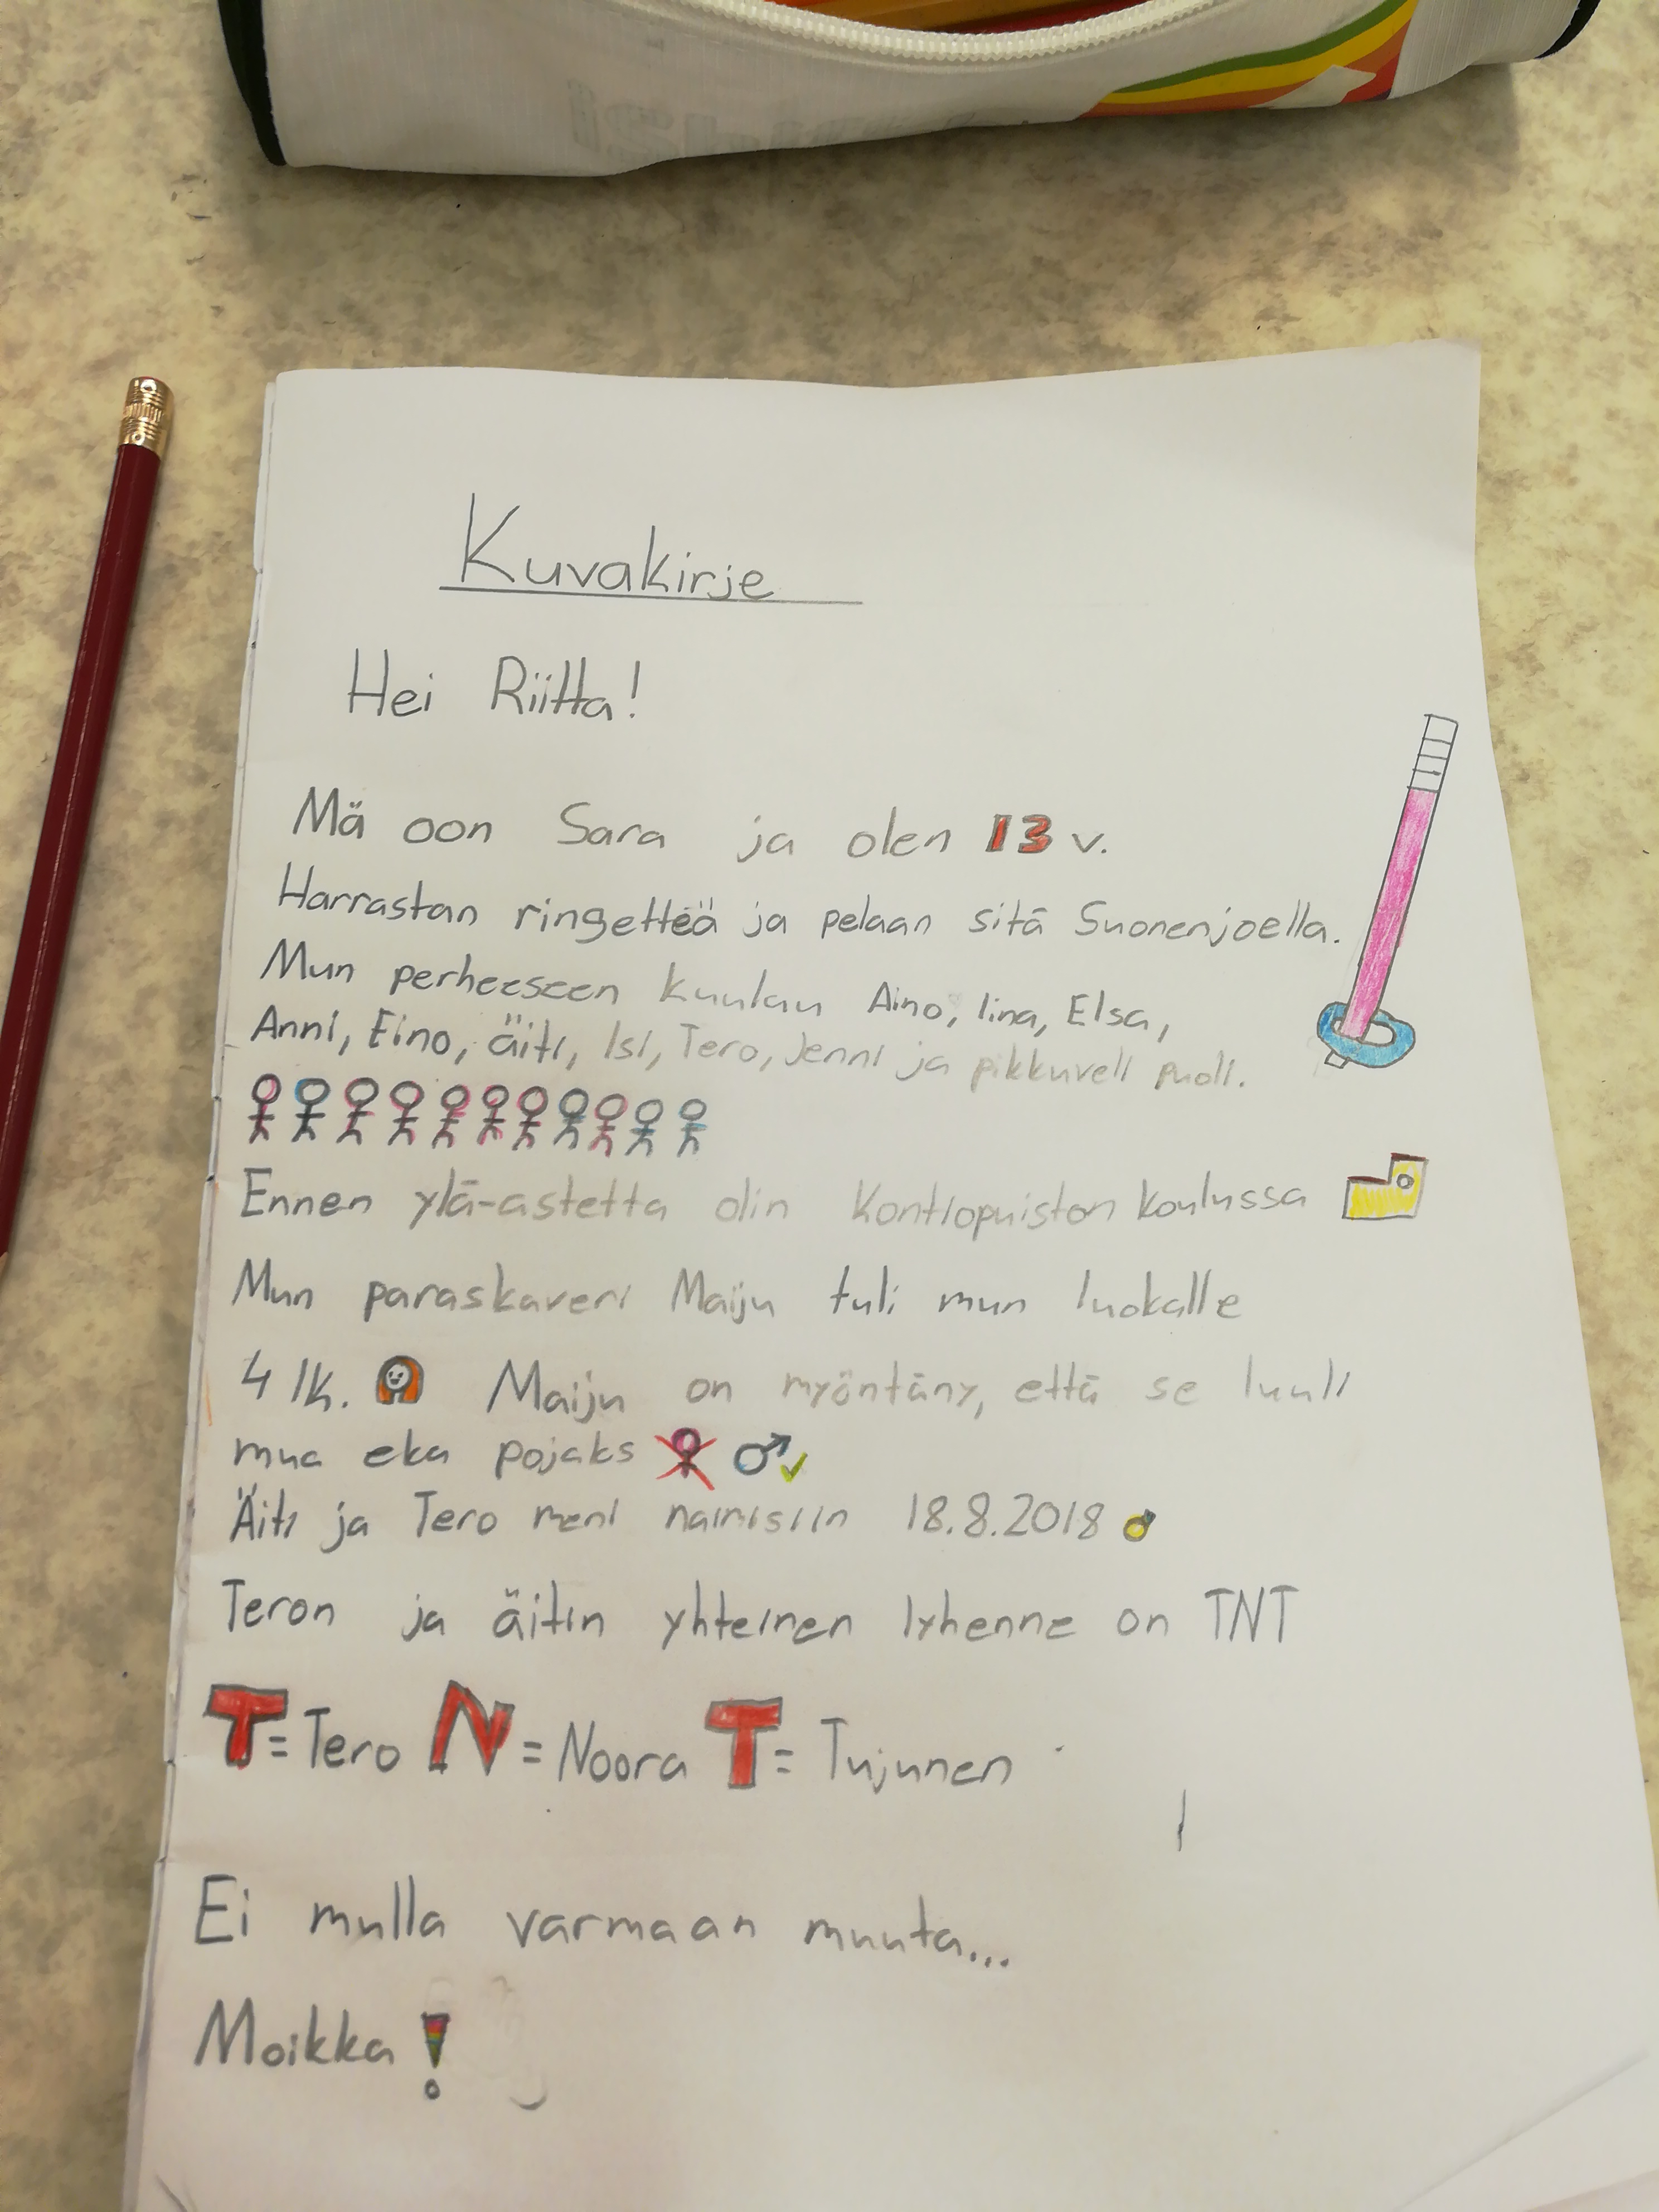 Kuvakirje
Hei Riitta!
Mä oon Sara ja olen 13 v.
Harrastan ringetteä ja pelaan sitä Suonenjoella.
Mun perheeseen kuuluu Aino, Iina, Elsa,
Anni, Eino, äiti, Isi, Tero, Jenni ja pikkuveli puoli.
Ennen ylä-astetta olin Kontiopuiston koulussa
Mun paraskaveri Maiju tuli mun luokalle
4 lk. Maiju on myöntäny, että se luuli
mua eka pojaks
Äiti ja Tero meni naimisiin 18.8.2018
Teron ja äitin yhteinen lyhenne on TNT
T=Tero N=Noora T= Tujunen
Ei mulla varmaan muuta...
Moikka!